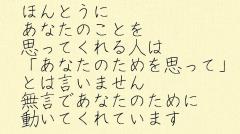 ほんとうに
あなたのことを
思ってくれる人は
「あなたのためを思って」
とは言いません
無言であなたのために
動いてくれています